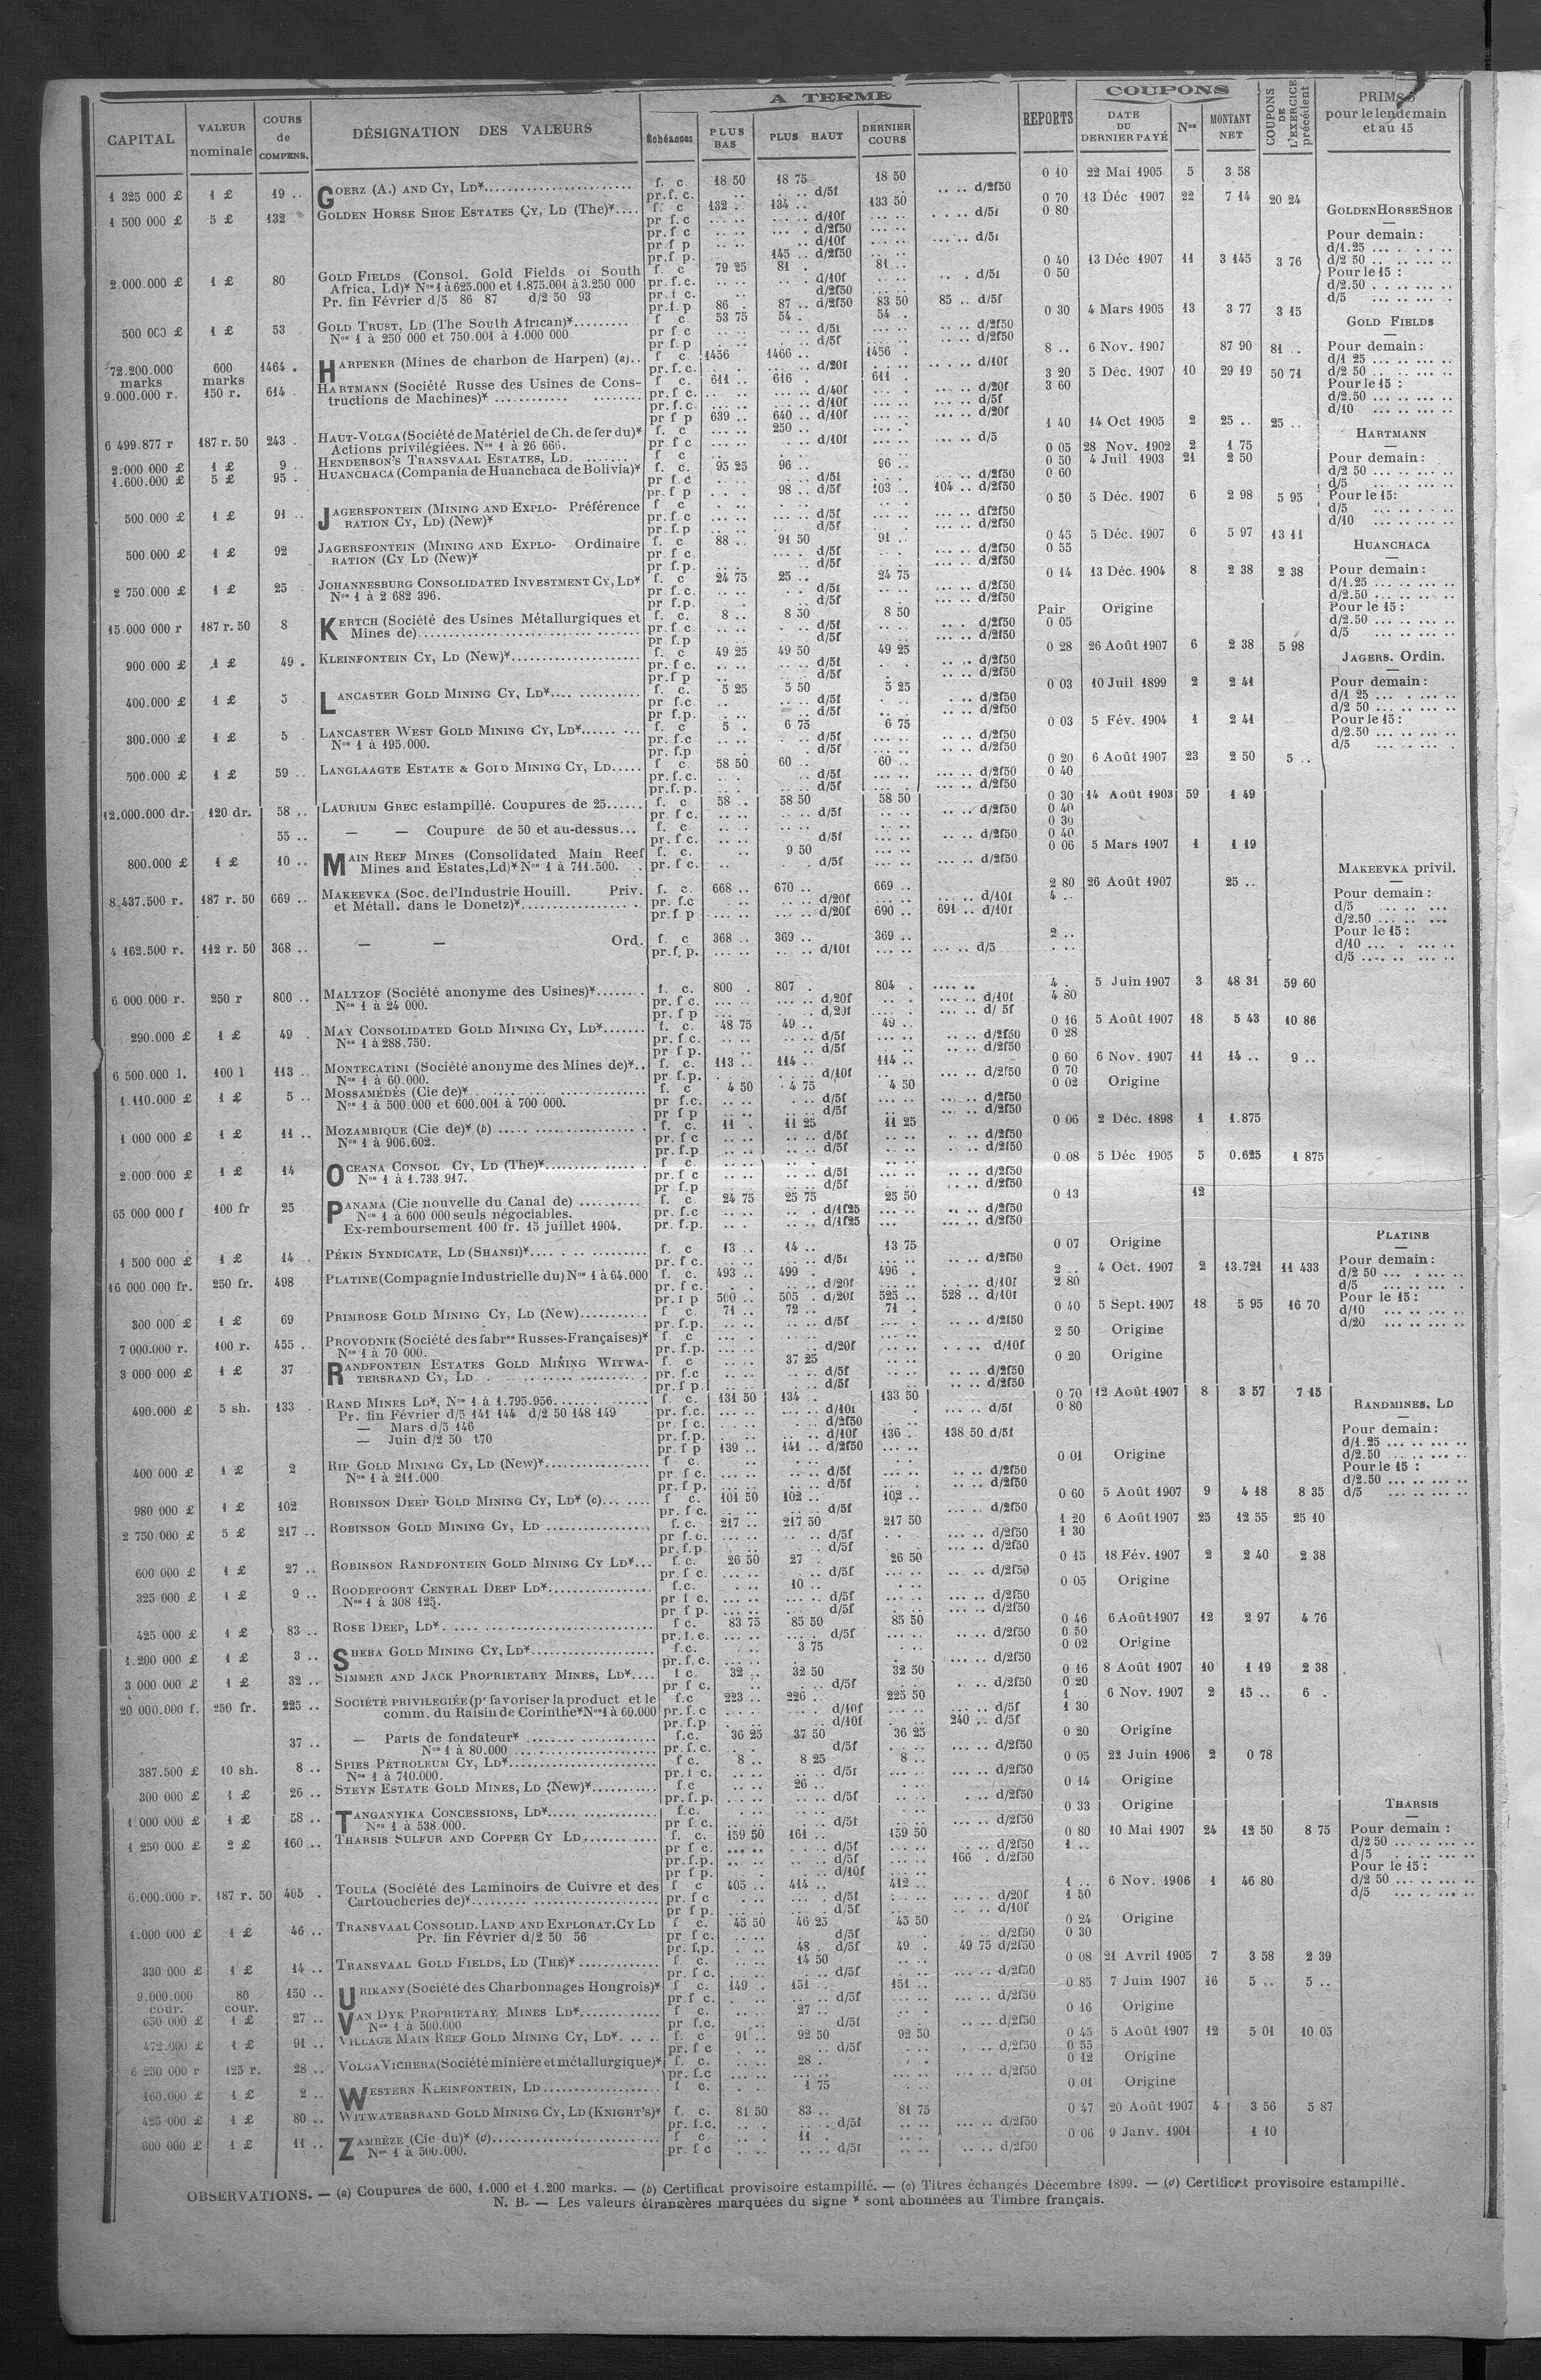 A TERME
COUPONS
CAPITAL VALEUR nominale COURS de COMPENS. DÉSIGNATION DES VALEURS Échéances PLUS BAS PLUS HAUT DERNIER COURS REPORTS DATE DU DERNIER PAYÉ Nos MONTANT NET COUPONS DE L'EXERCICE précédent PRIMES pour le lendemain et au 15
1 325 000 £ 1 £ 19 .. GOERZ (A.) AND CY, LD* f. c. 18 50 18 75 18 50 0 10 22 Mai 1905 5 3 58
pr. f. c. d/5f d/2f50
1 500 000 £ 5 £ 132 GOLDEN HORSE SHOE ESTATES CY, LD (The)* f. c 132 . 134 .. 133 50 0 70 13 Déc 1907 22 7 14 20 24
pr f. c d/10f d/5f 0 80
pr. f c d/2f50
pr f p d/10f d/5f
pr. f p. 145 .. d/2f50
2.000.000 £ 1 £ 80 GOLD FIELDS (Consol. Gold Fields of South f. c 79 25 81 . 81 .. 0 40 13 Déc 1907 11 3 145 3 76
Africa, Ld)* Nos 1 à 625.000 et 1.875.001 à 3.250 000 pr. f. c. d/10f d/5f 0 50
Pr. fin Février d/5 86 87 d/2 50 93 pr. f c. d/2f50
pr. f. p 86 . 87 .. d/2f50 83 50 85 .. d/5f
500 000 £ 1 £ 53 GOLD TRUST, LD (The South African)* f c. 53 75 54 . 54 .. 0 30 4 Mars 1905 13 3 77 3 15
Nos 1 à 250 000 et 750.001 à 1.000 000 pr f c d/5f d/2f50
pr f. p d/5f d/2f50
72.200.000 marks 600 marks 1464 . HARPENER (Mines de charbon de Harpen) (a) f c. 1456 1466 .. 1456 . 8 .. 6 Nov. 1907 87 90 81 ..
pr. f. c. d/20f d/10f
9.000.000 r. 150 r. 614 . HARTMANN (Société Russe des Usines de Cons- f c. 611 .. 616 . 611 . 3 20 5 Déc. 1907 10 29 19 50 71
tructions de Machines)* pr. f c. d/40f d/20f 3 60
pr. f. c. d/10f d/5f
pr f p 639 .. 640 .. d/10f d/20f
6 499.877 r 187 r. 50 243 . HAUT-VOLGA (Société de Matériel de Ch. de fer du)* f. c 250 .. 1 40 14 Oct 1905 2 25 .. 25 ..
Actions privilégiées. Nos 1 à 26 666. pr f c d/10f d/5
2.000 000 £ 1 £ 9 .. HENDERSON'S TRANSVAAL ESTATES, LD. f c 0 05 28 Nov. 1902 2 1 75
1.600.000 £ 5 £ 95 . HUANCHACA (Compania de Huanchaca de Bolivia)* f. c. 95 25 96 .. 96 .. 0 50 4 Juil 1903 21 2 50
pr f. c d/5f d/2f50 0 60
pr. f p 98 .. d/5f 103 .. 104 .. d/2f50
500.000 £ 1 £ 91 .. JAGERSFONTEIN (MINING AND EXPLO- Préférence f c 0 50 5 Déc. 1907 6 2 98 5 95
RATION CY, LD) (New)* pr f. c d/5f d/2f50
pr. f p. d/5f d/2f50
500.000 £ 1 £ 92 JAGERSFONTEIN (MINING AND EXPLO- Ordinaire f. c. 88 .. 91 50 91 .. 0 45 5 Déc. 1907 6 5 97 13 11
RATION (CY LD (New)* pr f c. d/5f d/2f50 0 55
pr f. p. d/5f d/2f50
2 750.000 £ 1 £ 25 JOHANNESBURG CONSOLIDATED INVESTMENT CY, LD* f. c 24 75 25 .. 24 75 0 14 13 Déc. 1904 8 2 38 2 38
Nos 1 à 2 682 396. pr f. c. d/5f d/2f50
pr f. p. d/5f d/2f50
15.000 000 r 187 r. 50 8 KERTCH (Société des Usines Métallurgiques et f. c. 8 .. 8 50 8 50 Pair Origine
Mines de) pr. f c. d/5f d/2f50 0 05
pr. f. p d/5f d/2f50
900.000 £ 1 £ 49 . KLEINFONTEIN CY, LD (New)* f. c. 49 25 49 50 49 25 0 28 26 Août 1907 6 2 38 5 98
pr. f c. d/5f d/2f50
pr. f p d/5f d/2f50
400.000 £ 1 £ 5 LANCASTER GOLD MINING CY, LD* f. c. 5 25 5 50 5 25 0 03 10 Juil 1899 2 2 41
pr f. c. d/5f d/2f50
pr f. p. d/5f d/2f50
300.000 £ 1 £ 5 . LANCASTER WEST GOLD MINING CY, LD* f. c 5 . 6 75 6 75 0 03 5 Fév. 1904 1 2 41
Nos 1 à 195.000. pr. f. c d/5f d/2f50
pr. f. p d/5f d/2f50
500.000 £ 1 £ 59 .. LANGLAAGTE ESTATE & GOLD MINING CY, LD f c. 58 50 60 .. 60 .. 0 20 6 Août 1907 23 2 50 5 ..
pr. f. c. d/5f d/2f50 0 40
pr. f. p. d/5f d/2f50
12.000.000 dr. 120 dr. 58 .. LAURIUM GREC estampillé. Coupures de 25 f. c 58 .. 58 50 58 50 0 30 14 Août 1903 59 1 49
pr f c. d/5f d/2f50 0 40
55 .. — — Coupure de 50 et au-dessus f. c. 0 30
pr. f c. d/5f d/2f50 0 40
800.000 £ 1 £ 10 .. MAIN REEF MINES (Consolidated Main Reef f. c. 9 50 0 06 5 Mars 1907 1 1 19
Mines and Estates, Ld)* Nos 1 à 711.500. pr. f c. d/5f d/2f50
8.437.500 r. 187 r. 50 669 .. MAKEEVKA (Soc. de l'Industrie Houill. Priv. f. c. 668 .. 670 .. 669 .. 2 80 26 Août 1907 25 ..
et Métall. dans le Donetz)* pr. f. c d/20f d/10f 4 ..
pr. f p d/20f 690 .. 691 .. d/10f
4 162.500 r. 112 r. 50 368 .. — — Ord. f. c 368 .. 369 .. 369 .. 2 ..
pr. f. p. d/10f d/5
6 000 000 r. 250 r 800 .. MALTZOF (Société anonyme des Usines)* f. c. 800 . 807 . 804 . 4 . 5 Juin 1907 3 48 31 59 60
Nos 1 à 24 000. pr. f c. d/20f d/10f 4 80
pr. f p d/20f d/ 5f
290.000 £ 1 £ 49 . MAY CONSOLIDATED GOLD MINING CY, LD* f. c. 48 75 49 .. 49 .. 0 16 5 Août 1907 18 5 43 10 86
Nos 1 à 288.750. pr. f c. d/5f d/2f50 0 28
pr f p. d/5f d/2f50
6 500.000 l. 100 l 113 .. MONTECATINI (Société anonyme des Mines de)* f. c. 113 .. 114 .. 114 .. 0 60 6 Nov. 1907 11 14 .. 9 ..
Nos 1 à 60.000. pr f. p. d/10f d/2f50 0 70
1.110.000 £ 1 £ 5 .. MOSSAMÉDÈS (Cie de)* f. c 4 50 4 75 4 50 0 02 Origine
Nos 1 à 500 000 et 600.001 à 700 000. pr f. c. d/5f d/2f50
pr f p d/5f d/2f50
1 000 000 £ 1 £ 11 .. MOZAMBIQUE (Cie de)* (b) f. c. 11 . 11 25 11 25 0 06 2 Déc. 1898 1 1.875
Nos 1 à 906.602. pr. f c d/5f d/2f50
pr. f. p d/5f d/2f50
2.000.000 £ 1 £ 14 OCEANA CONSOL CY, LD (The)* f c. 0 08 5 Déc 1905 5 0.625 1 875
Nos 1 à 1.733.917. pr. f c d/5f d/2f50
pr f. p d/5f d/2f50
65 000 000 f 100 fr 25 PANAMA (Cie nouvelle du Canal de) f. c 24 75 25 75 25 50 0 13 12
Nos 1 à 600 000 seuls négociables. pr. f. c d/1f25 d/2f50
Ex-remboursement 100 fr. 15 juillet 1904. pr. f. p. d/1f25 d/2f50
1 500 000 £ 1 £ 14 .. PÉKIN SYNDICATE, LD (SHANSI)* f. c 13 .. 14 .. 13 75 0 07 Origine
pr. f c. d/5f d/2f50
16 000 000 fr. 250 fr. 498 PLATINE (Compagnie Industrielle du) Nos 1 à 64.000 f. c. 493 .. 499 . 496 . 2 .. 4 Oct. 1907 2 13.721 11 433
pr. f c. d/20f d/10f 2 80
pr. f p 500 .. 505 . d/20f 525 .. 528 .. d/10f
300 000 £ 1 £ 69 PRIMROSE GOLD MINING CY, LD (New) f c. 71 .. 72 .. 71 . 0 40 5 Sept. 1907 18 5 95 16 70
pr. f. p. d/5f d/2f50
7 000.000 r. 100 r. 455 .. PROVODNIK (Société des fabres Russes-Françaises)* f c 2 50 Origine
Nos 1 à 70 000. pr. f. p. d/20f d/10f
3 000 000 £ 1 £ 37 RANDFONTEIN ESTATES GOLD MINING WITWA- f c 37 25 0 20 Origine
TERSRAND CY, LD pr. f. c d/5f d/2f50
pr f p. d/5f d/2f50
490.000 £ 5 sh. 133 . RAND MINES LD*, Nos 1 à 1.795.956 f. c. 131 50 134 .. 133 50 0 70 12 Août 1907 8 3 57 7 15
Pr. fin Février d/5 141 144 d/2 50 148 149 pr. f. c. d/10f d/5f 0 80
— Mars d/5 146 pr. f c. d/2f50
— Juin d/2 50 170 pr. f. p. d/10f 136 . 138 50 d/5f
pr. f p 139 .. 141 .. d/2f50
400 000 £ 1 £ 2 RIP GOLD MINING CY, LD (New)* f c. 0 01 Origine
Nos 1 à 211.000 pr. f c. d/5f d/2f50
pr. f p. d/5f d/2f50
980 000 £ 1 £ 102 ROBINSON DEEP GOLD MINING CY, LD* (c) f c. 101 50 102 .. 102 .. 0 60 5 Août 1907 9 4 18 8 35
pr. f c. d/5f d/2f50
2 750 000 £ 5 £ 217 .. ROBINSON GOLD MINING CY, LD f. c. 217 .. 217 50 217 50 1 20 6 Août 1907 25 12 55 25 10
pr f. c. d/5f d/2f50 1 30
pr. f. p d/5f d/2f50
600 000 £ 1 £ 27 .. ROBINSON RANDFONTEIN GOLD MINING CY LD* f. c. 26 50 27 . 26 50 0 15 18 Fév. 1907 2 2 40 2 38
pr. f c. d/5f d/2f50
325 000 £ 1 £ 9 .. ROODEPOORT CENTRAL DEEP LD* f. c. 10 .. 0 05 Origine
Nos 1 à 308 125. pr f c. d/5f d/2f50
pr f p. d/5f d/2f50
425 000 £ 1 £ 83 .. ROSE DEEP, LD* f c. 83 75 85 50 85 50 0 46 6 Août 1907 12 2 97 4 76
pr. f. c. d/5f d/2f50 0 50
1.200 000 £ 1 £ 3 .. SHEBA GOLD MINING CY, LD* f. c. 3 75 0 02 Origine
pr. f. c. d/2f50
3 000 000 £ 1 £ 32 .. SIMMER AND JACK PROPRIETARY MINES, LD* f c. 32 .. 32 50 32 50 0 16 8 Août 1907 10 1 19 2 38
pr f c. d/5f d/2f50 0 20
20 000.000 f. 250 fr. 225 .. SOCIÉTÉ PRIVILEGIÉE (pr favoriser la product et le f. c 223 .. 226 .. 225 50 1 .. 6 Nov. 1907 2 15 .. 6 .
comm. du Raisin de Corinthe* Nos 1 à 60.000 pr. f. c d/10f d/5f 1 30
pr. f. p d/10f 240 .. d/5f
37 .. — Parts de fondateur* f. c. 36 25 37 50 36 25 0 20 Origine
Nos 1 à 80.000 pr. f. c. d/5f d/2f50
387.500 £ 10 sh. 8 .. SPIES PÉTROLEUM CY, LD* f c. 8 .. 8 25 8 .. 0 05 22 Juin 1906 2 0 78
Nos 1 à 710.000. pr. f c. d/5f d/2f50
300 000 £ 1 £ 26 .. STEYN ESTATE GOLD MINES, LD (New)* f. c 26 .. 0 14 Origine
pr. f. p. d/5f d/2f50
1.000 000 £ 1 £ 58 .. TANGANYIKA CONCESSIONS, LD* f. c. 0 33 Origine
Nos 1 à 538.000. pr f c. d/5f d/2f50
1 250 000 £ 2 £ 160 .. THARSIS SULFUR AND COPPER CY LD f. c. 159 50 161 .. 159 50 0 80 10 Mai 1907 24 12 50 8 75
pr f c. d/5f d/2f50 1 ..
pr. f. p. d/5f 166 . d/2f50
pr f p. d/10f
6.000.000 r. 187 r. 50 405 . TOULA (Société des Laminoirs de Cuivre et des f c 405 .. 414 .. 412 .. 1 .. 6 Nov. 1906 1 46 80
Cartoucheries de)* pr. f c d/5f d/20f 1 50
pr f p. d/5f d/10f
1.000 000 £ 1 £ 46 .. TRANSVAAL CONSOLID. LAND AND EXPLORAT. CY LD f c. 45 50 46 25 45 50 0 24 Origine
Pr. fin Février d/2 50 56 pr. f c. d/5f d/2f50 0 30
pr. f. p. 48 . d/5f 49 . 49 75 d/2f50
330 000 £ 1 £ 14 .. TRANSVAAL GOLD FIELDS, LD (THE)* f c. 14 50 0 08 21 Avril 1905 7 3 58 2 39
pr. f c. d/5f d/2f50
9.000.000 cour. 80 cour. 150 .. URIKANY (Société des Charbonnages Hongrois)* f c. 149 . 151 .. 151 .. 0 85 7 Juin 1907 16 5 .. 5 ..
pr. f c. d/5f d/2f50
650 000 £ 1 £ 27 .. VAN DYK PROPRIETARY MINES LD* f c. 27 .. 0 16 Origine
Nos 1 à 500.000 pr f. c. d/5f d/2f50
472.000 £ 1 £ 91 .. VILLAGE MAIN REEF GOLD MINING CY, LD* f. c 91 .. 92 50 92 50 0 45 5 Août 1907 12 5 01 10 05
pr. f c d/5f d/2f50 0 55
6 250 000 r 125 r. 28 .. VOLGA VICHERA (Société minière et métallurgique)* f. c. 28 . 0 12 Origine
pr. f. c d/2f50
160.000 £ 1 £ 2 .. WESTERN KLEINFONTEIN, LD f c. 1 75 0 01 Origine
425 000 £ 1 £ 80 .. WITWATERSRAND GOLD MINING CY, LD (KNIGHT'S)* f. c. 81 50 83 .. 81 75 0 47 20 Août 1907 4 3 56 5 87
pr. f. c. d/5f d/2f50
600 000 £ 1 £ 11 .. ZAMBÈZE (Cie du)* (d) f c 11 . 0 06 9 Janv. 1901 1 10
Nos 1 à 500.000. pr. f c d/5f d/2f50
GOLDEN HORSE SHOE
Pour demain :
d/1.25
d/2 50
Pour le 15 :
d/2.50
d/5
GOLD FIELDS
Pour demain :
d/1 25
d/2 50
Pour le 15 :
d/2.50
d/10
HARTMANN
Pour demain :
d/2 50
d/5
Pour le 15 :
d/5
d/10
HUANCHACA
Pour demain :
d/1.25
d/2.50
Pour le 15 :
d/2.50
d/5
JAGERS. Ordin.
Pour demain :
d/1 25
d/2 50
Pour le 15 :
d/2.50
d/5
MAKEEVKA privil.
Pour demain :
d/5
d/2.50
Pour le 15 :
d/10
d/5
PLATINE
Pour demain :
d/2 50
d/5
Pour le 15 :
d/10
d/20
RANDMINES, LD
Pour demain :
d/1.25
d/2.50
Pour le 15 :
d/2.50
d/5
THARSIS
Pour demain :
d/2 50
d/5
Pour le 15 :
d/2 50
d/5
OBSERVATIONS. — (a) Coupures de 600, 1.000 et 1.200 marks. — (b) Certificat provisoire estampillé. — (c) Titres échangés Décembre 1899. — (d) Certificat provisoire estampillé.
N. B. — Les valeurs étrangères marquées du signe * sont abonnées au Timbre français.